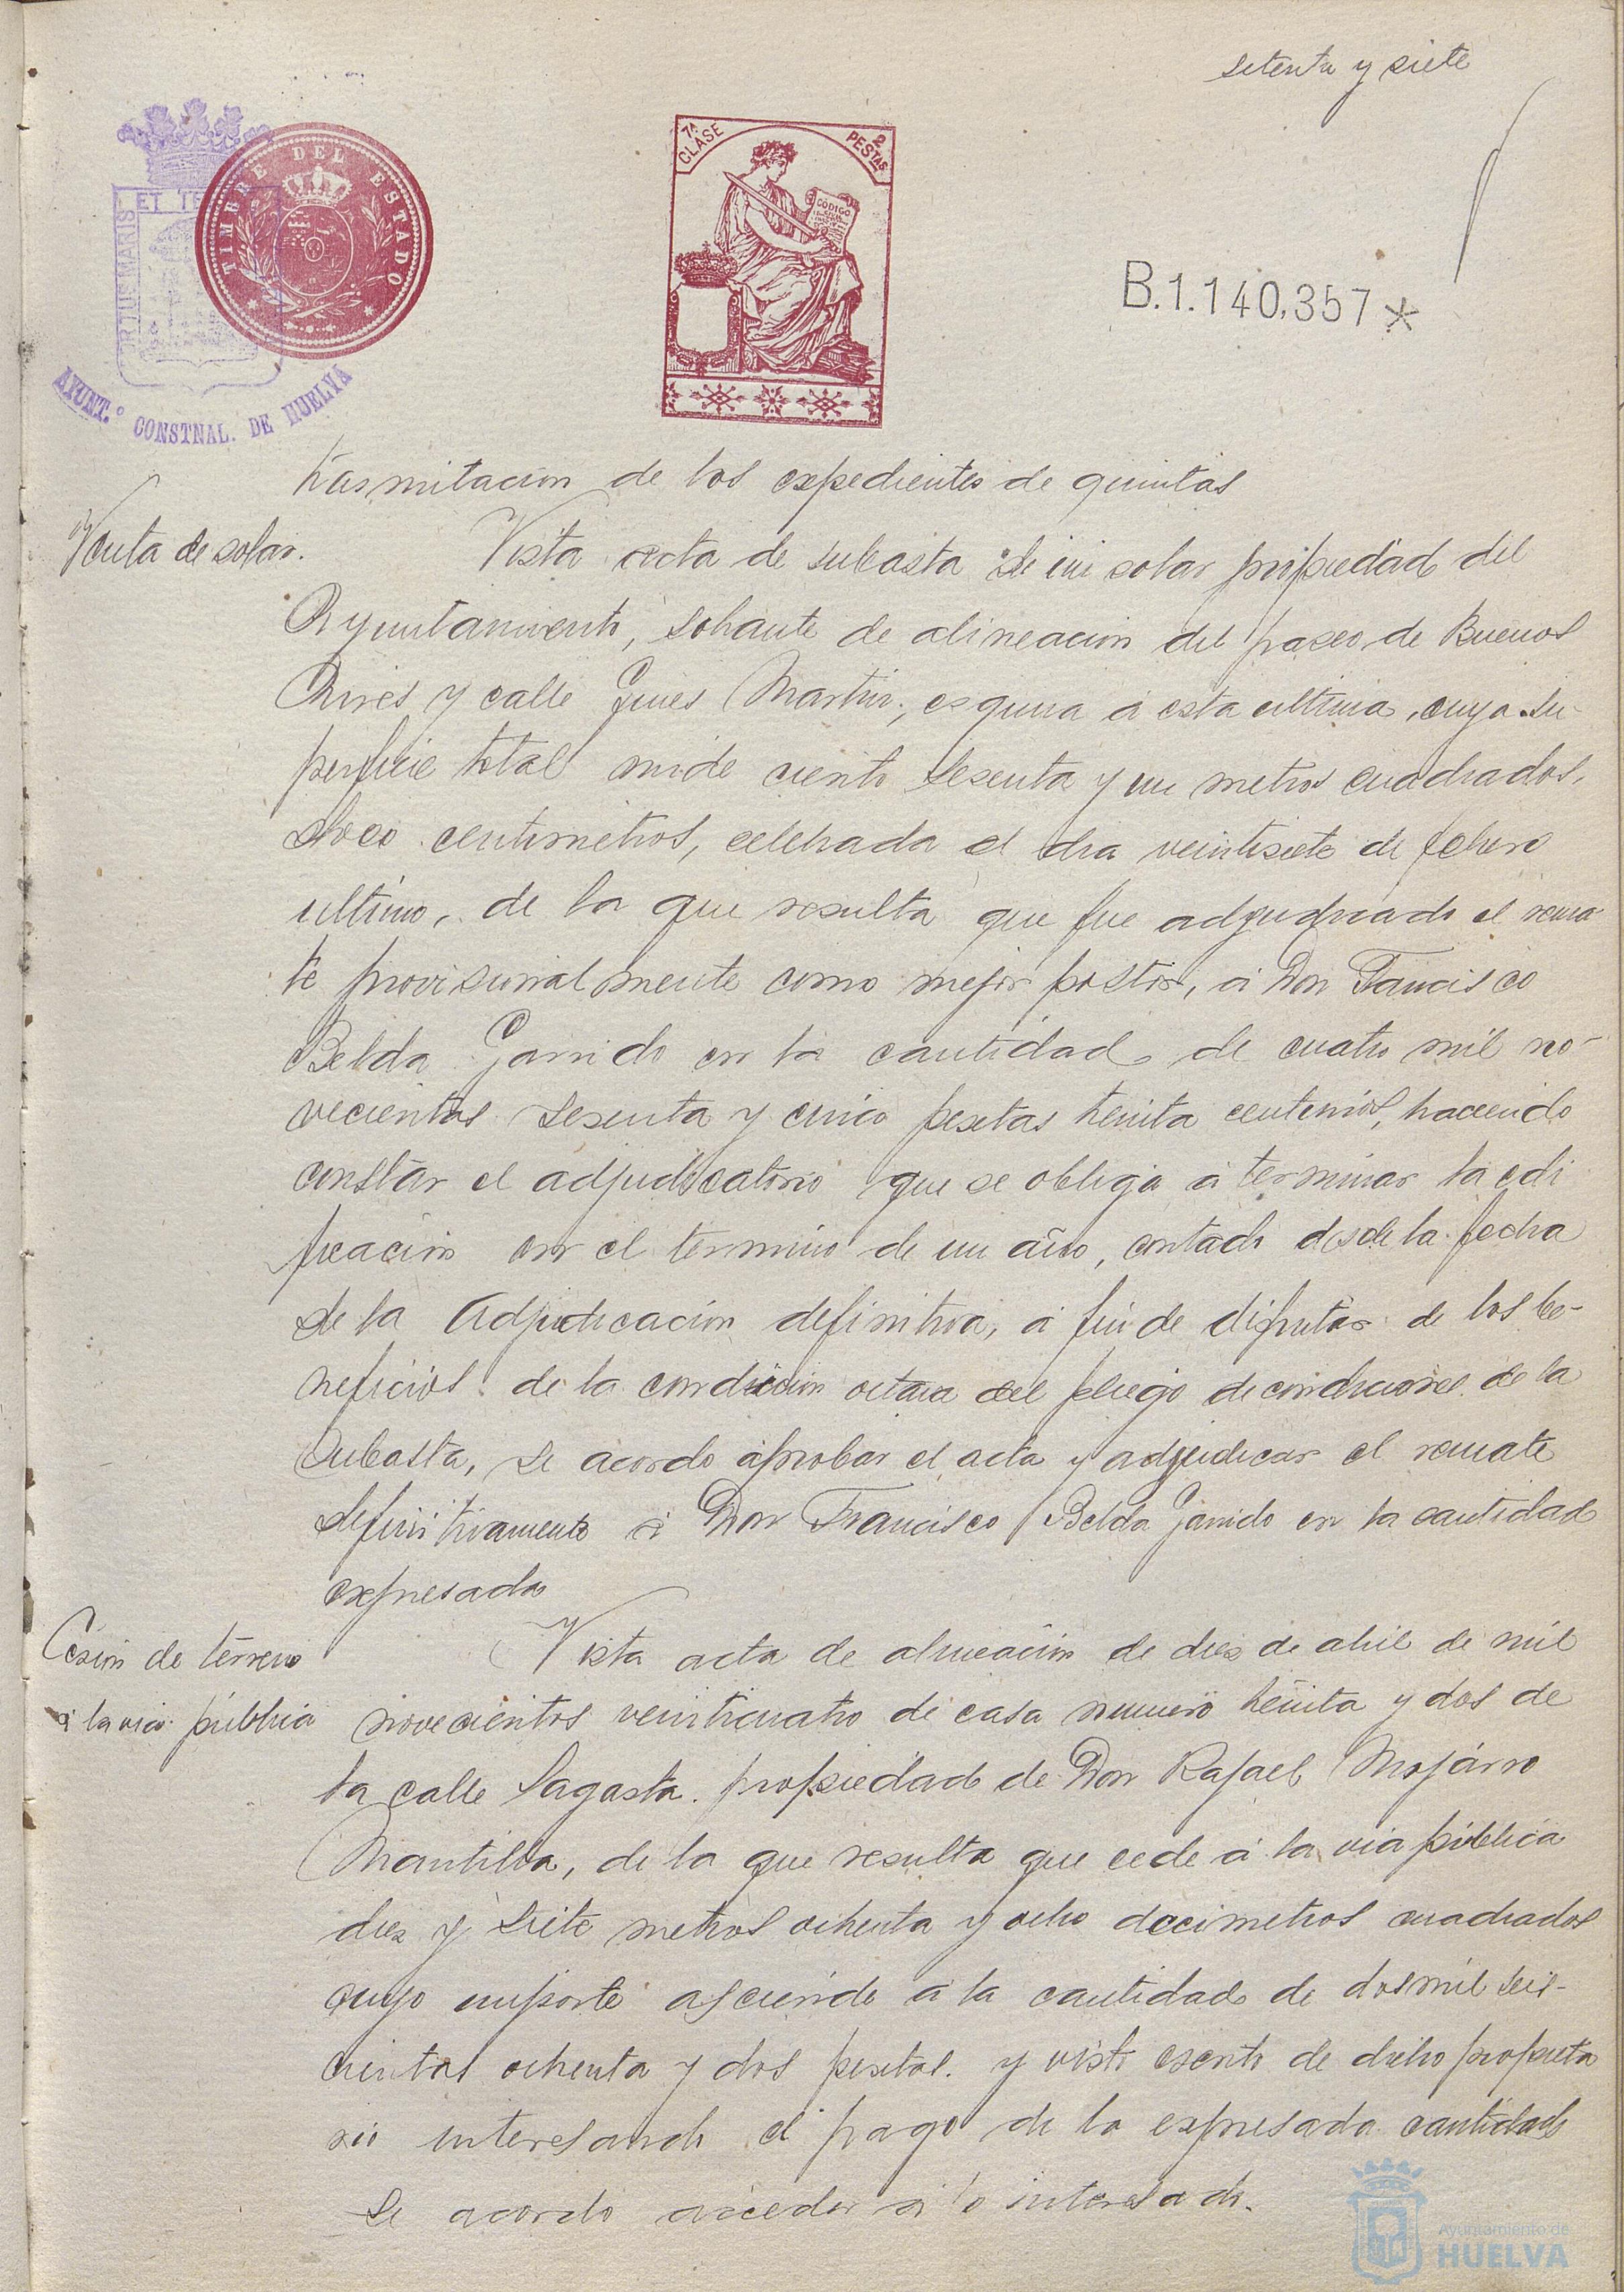 setenta y siete
TIMBRE DEL ESTADO
ET TE
PORTUS MARIS
AYUNT.º CONSTNAL. DE HUELVA
7ª CLASE
2 PESTAS
CÓDIGO
B.1.140,357*
trasmitacion de los expedientes de quintas
Venta de solar.
Vista acta de subasta de un solar propiedad del
Ayuntamiento, sobrante de alineacion del paseo de Buenos
Aires y calle Gines Martin, esquina á esta ultima, cuya su-
perficie total mide ciento sesenta y un metros cuadrados,
doce centimetros, celebrada el dia veintisiete de febrero
ultimo, de la que resulta que fue adjudicado el rema-
te provisionalmente como mejor postor, á Don Francisco
Belda Garrido en la cantidad de cuatro mil no-
vecientas sesenta y cinco pesetas treinta centimos, haciendo
constar el adjudicatorio que se obliga á terminar la edi
ficación en el termino de un año, contado desde la fecha
de la adjudicación definitiva, á fin de difrutar de los be-
neficios de la condicion octava del pliego de condiciones de la
subasta, se acordo aprobar el acta y adjudicar el remate
definitivamente á Don Francisco Belda Garrido en la cantidad
expresada
Cesión de terreno
á la via pública
Vista acta de alineación de diez de abril de mil
novecientos veinticuatro de casa numero treinta y dos de
la calle Sagasta. propiedad de Don Rafael Mojarro
Mantilla, de la que resulta que cede á la via pública
diez y siete metros ochenta y ocho decimetros cuadrados
cuyo importe asciende á la cantidad de dos mil seis-
cientas ochenta y dos pesetas. y visto escrito de dicho propieta
rio interesando el pago de la expresada cantidad
se acordo acceder á lo interesado.
Ayuntamiento de
HUELVA